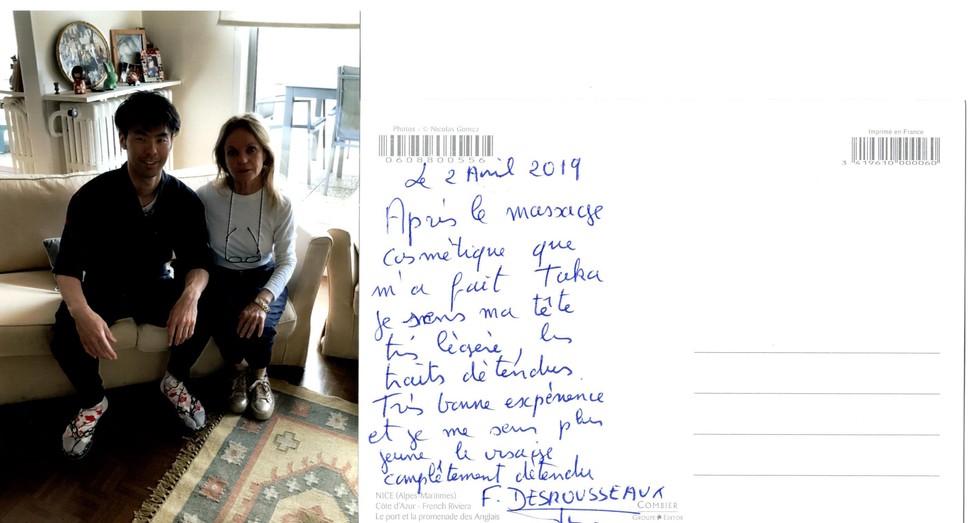 Photos - © Nicolas Gomez
0608800556
Imprimé en France
3 419610 000060
Le 2 Avril 2019
Après le massage
cosmétique que
m'a fait Taka
je sens ma tête
très légère, les
traits détendus.
Très bonne expérience
et je me sens plus
jeune le visage
complètement détendu
F. DESROUSSEAUX
NICE (Alpes-Maritimes)
Côte d'Azur - French Riviera
Le port et la promenade des Anglais
COMBIER
GROUPE EDITOR